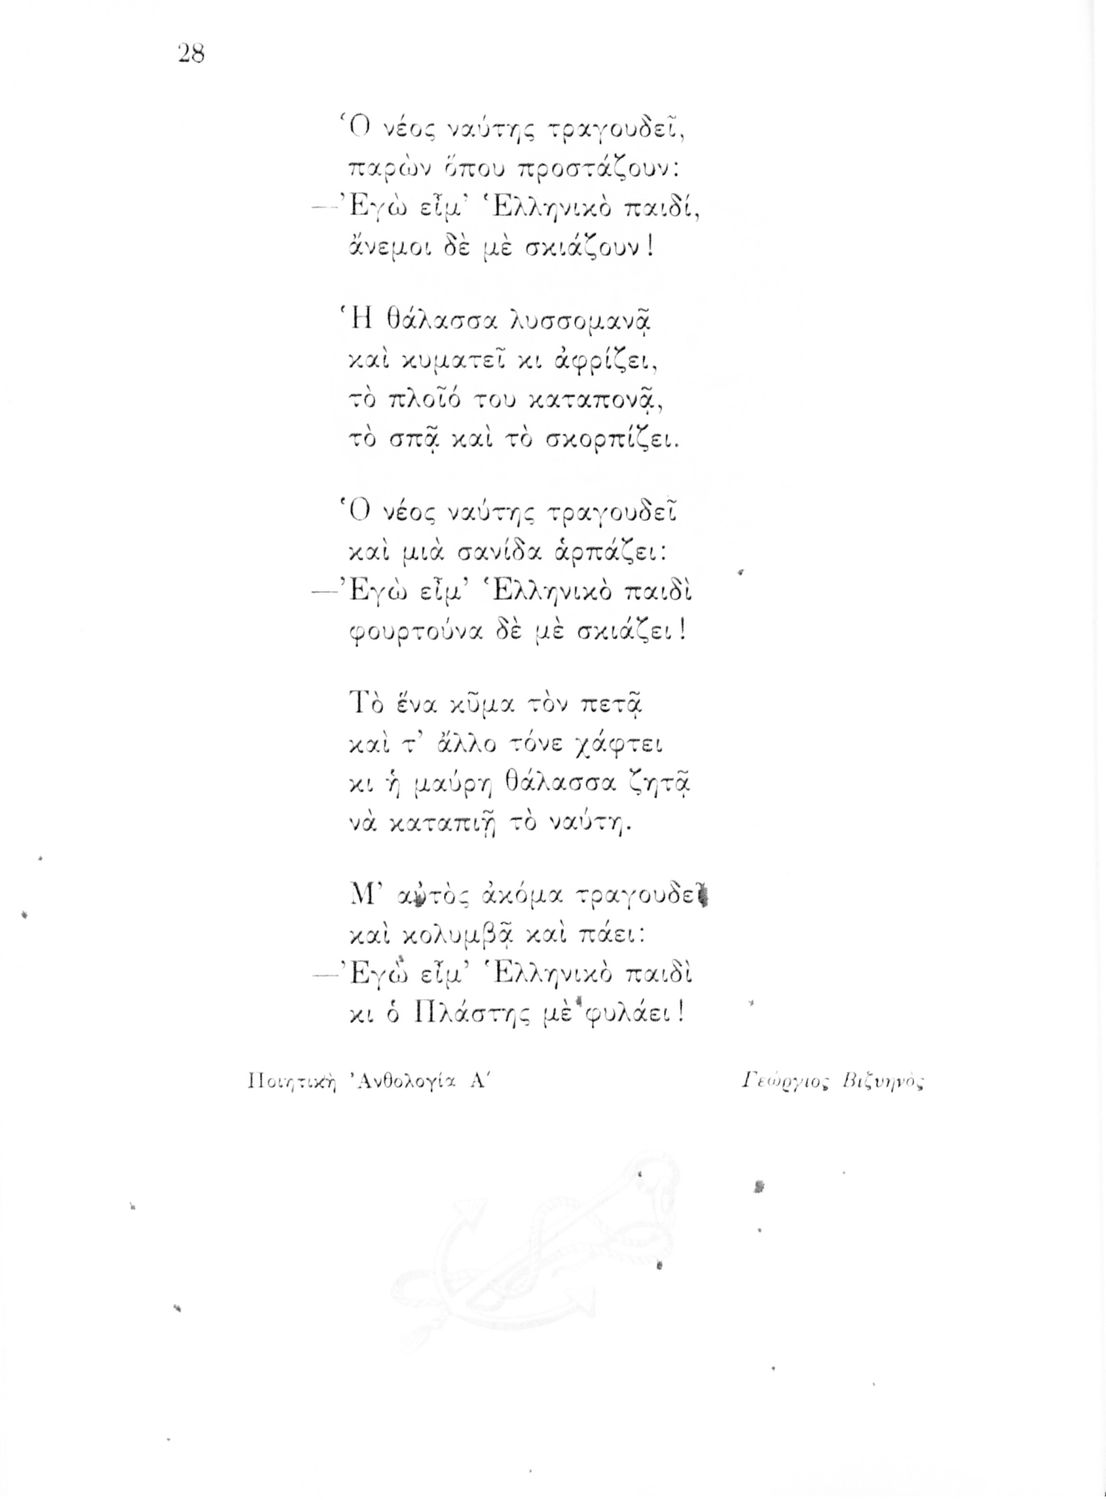 28
Ὁ νέος ναύτης τραγουδεῖ,
παρὼν ὅπου προστάζουν:
—Ἐγὼ εἶμ’ Ἑλληνικὸ παιδί,
ἄνεμοι δὲ μὲ σκιάζουν!
Ἡ θάλασσα λυσσομανᾷ
καὶ κυματεῖ κι ἀφρίζει,
τὸ πλοῖό του καταπονᾷ,
τὸ σπᾷ καὶ τὸ σκορπίζει.
Ὁ νέος ναύτης τραγουδεῖ
καὶ μιὰ σανίδα ἁρπάζει:
—Ἐγὼ εἶμ’ Ἑλληνικὸ παιδὶ
φουρτούνα δὲ μὲ σκιάζει!
Τὸ ἕνα κῦμα τὸν πετᾷ
καὶ τ’ ἄλλο τόνε χάφτει
κι ἡ μαύρη θάλασσα ζητᾷ
νὰ καταπιῇ τὸ ναύτη.
Μ’ αὐτὸς ἀκόμα τραγουδεῖ
καὶ κολυμβᾷ καὶ πάει:
—Ἐγὼ εἶμ’ Ἑλληνικὸ παιδὶ
κι ὁ Πλάστης μὲ φυλάει!
Ποιητικὴ Ἀνθολογία Α΄ Γεώργιος Βιζυηνὸς